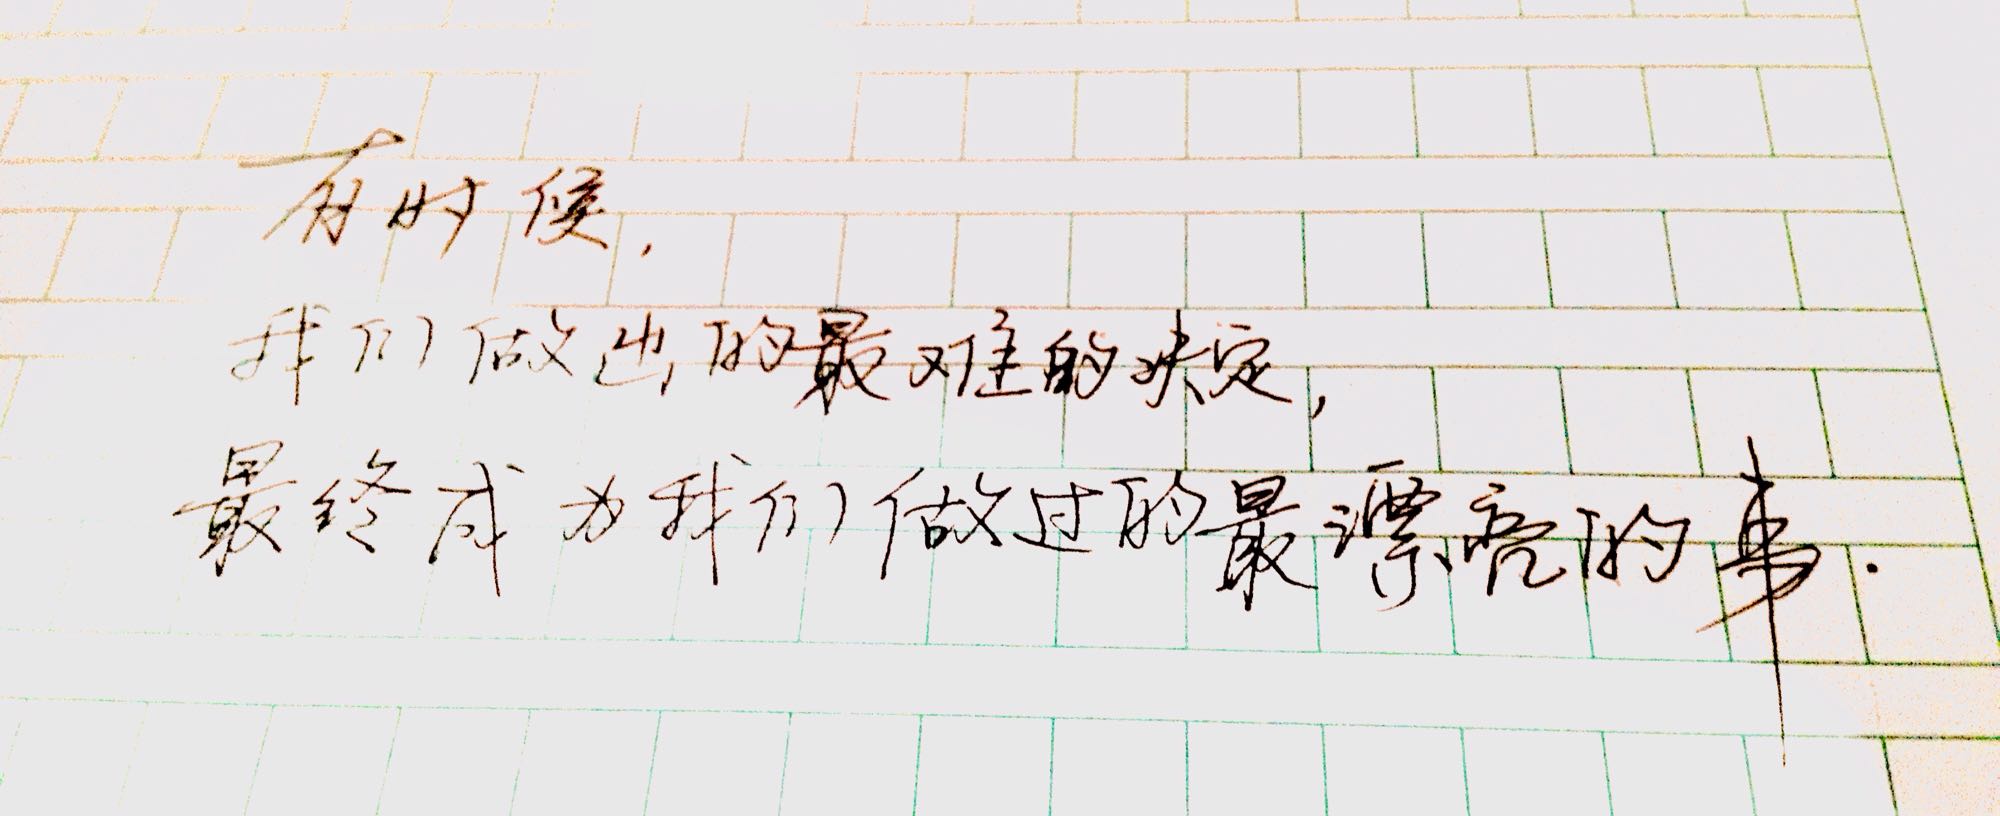 有时候,
我们做出的最难的决定,
最终成为我们做过的最漂亮的事.